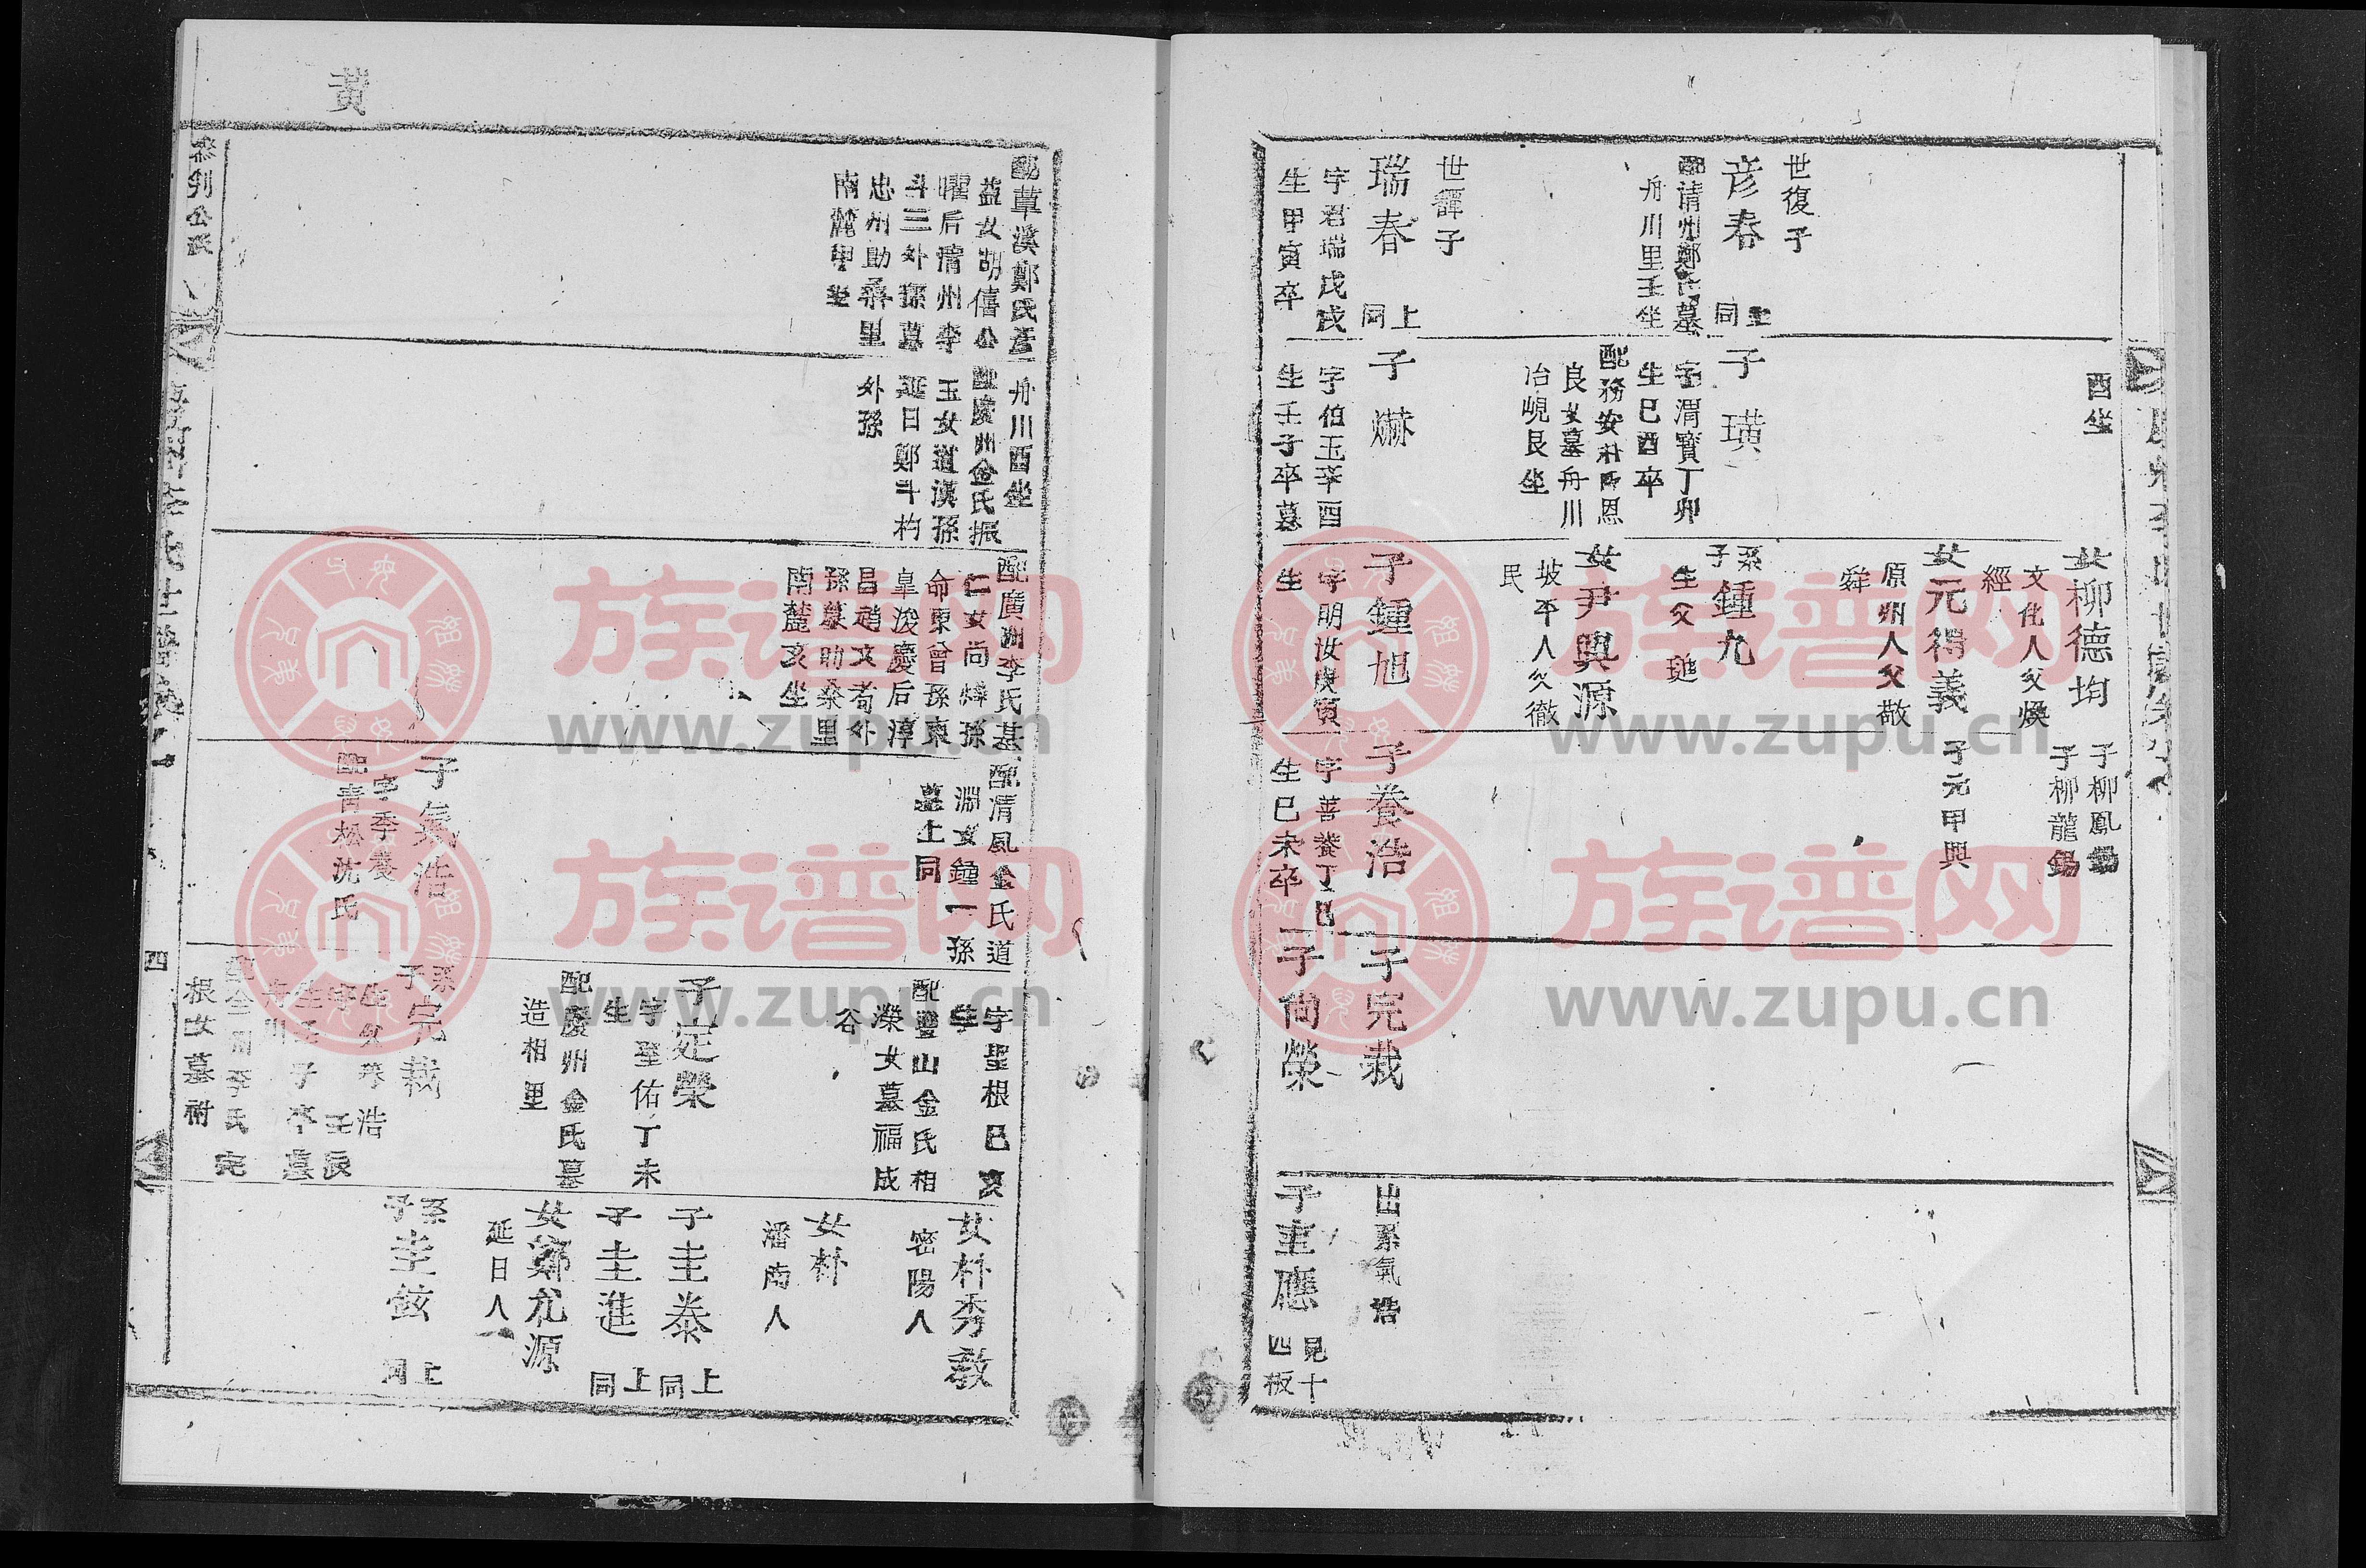 酉坐
世復子
彦春
上同
配清州鄭氏墓
舟川里壬坐
世鐸子
瑞春
上同
字君瑞戊戌
生甲寅卒
子璜
字渭寶丁卯
生己酉卒
配務安朴
恩
良女墓舟川
冶峴艮坐
子爀
字伯玉辛酉
生壬子卒墓
女柳德均
文化人父煥
經
女元得義
原州人父敬
舜
系子鍾九
生父
女尹興源
坡平人父徹
民
子鍾旭
字明汝庚寅
生
子柳鳳錫
子柳龍錫
子元甲興
子養浩
字善養丁巳
生己未卒
子完裁
子尙榮
出系氣浩
子圭應
見十
四板
黃
參判公派
配草溪鄭氏
益女胡僖公
曜后清州李
斗三外孫墓
忠州助桑里
南麓甲坐
舟川酉坐
配慶州金氏振
玉女道漢孫
延日鄭斗杓
外孫
配廣州李氏基
仁女尙燁孫
命東曾孫東
皐浚慶后漳
昌趙文
外
孫墓助桑里
南麓亥坐
配清風金氏道
淵女鍾一孫
墓上同
子氣浩
字季養
配青松沈氏
字聖根己亥
生
配豊山金氏相
濚女墓福成
谷
子定榮
字聖佑丁未
生
配慶州金氏墓
造相里
系子完裁
生父養浩
字
壬辰
生
子卒墓
舟川
配
李氏完
根女墓祔
女朴秀敎
密陽人
女朴
潘南人
子圭泰
上同
子圭進
上同
女鄭允源
延日人
系子圭鉉
上同
四
族谱网
www.zupu.cn
族谱网
www.zupu.cn
族谱网
www.zupu.cn
族谱网
www.zupu.cn